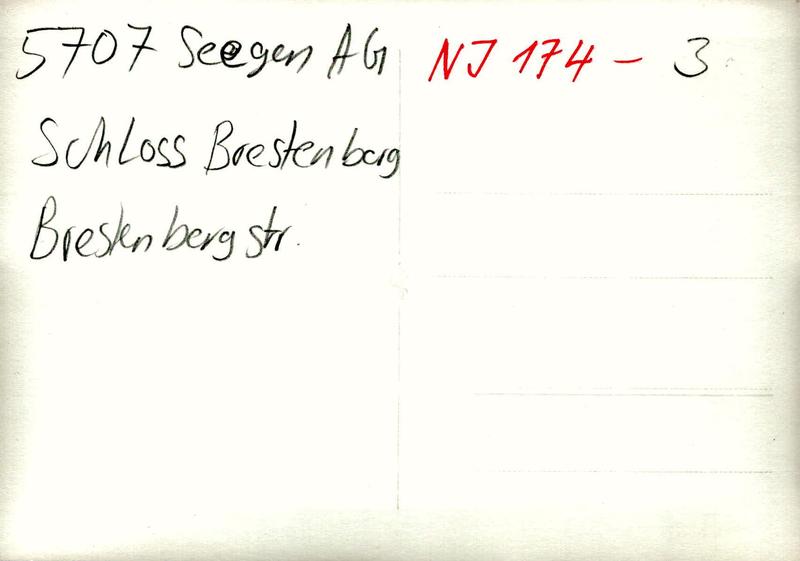 5707 Seegen AG
Schloss Brestenberg
Brestenbergstr.
NJ 174 - 3